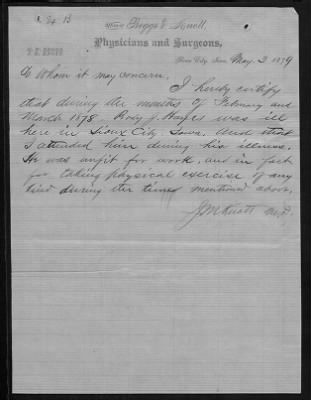 Office Briggs & Knott.
Physicians and Surgeons,
Sioux City, Iowa, May 3 1879
To Whom it may concern.
I hereby certify
that during the months of February and
March 1878, J. Hayes was ill
here in Sioux City, Iowa. And that
I attended him during his illness.
He was unfit for work, and in fact
for taking physical exercise of any
kind during the time mentioned above.
J M Knott M.D.